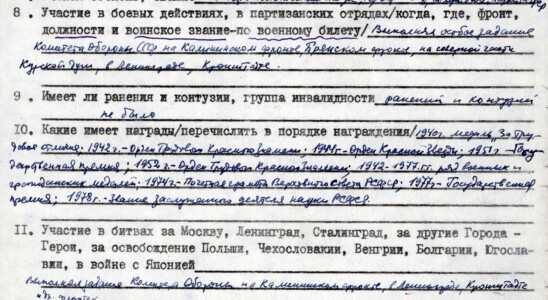 8 . Участие в боевых действиях, в партизанских отрядах/когда, где, фронт,
должности и воинское звание-по военному билету/ Выполнял особое задание
Комитета Обороны СССР на Калининском фронте, Брянском фронте, на северной части
Курской дуги, в Ленинграде, Кронштадте.
9 . Имеет ли ранения и контузии, группа инвалидности ранений и контузий
не было
10. Какие имеет награды/перечислить в порядке награждения/ 1940г. медаль "За тру-
довое отличие"; 1942г.- Орден Трудового Красного Знамени; 1944г.- Орден Красной Звезды; 1951г.- Госу-
дарственная премия; 1952г.- Орден Трудового Красного Знамени; 1942-1977гг. ряд военных и
гражданских медалей; 1974г.- Почетная грамота Верховного Совета РСФСР; 1977г.- Государственная
премия; 1978г.- Звание заслуженного деятеля науки РСФСР.
II. Участие в битвах за Москву, Ленинград, Сталинград, за другие Города -
Герои, за освобождение Польши, Чехословакии, Венгрии, Болгарии, Югосла-
вии, в войне с Японией
Выполнял задания Комитета Обороны на Калининском фронте, в Ленинграде, Кронштадте